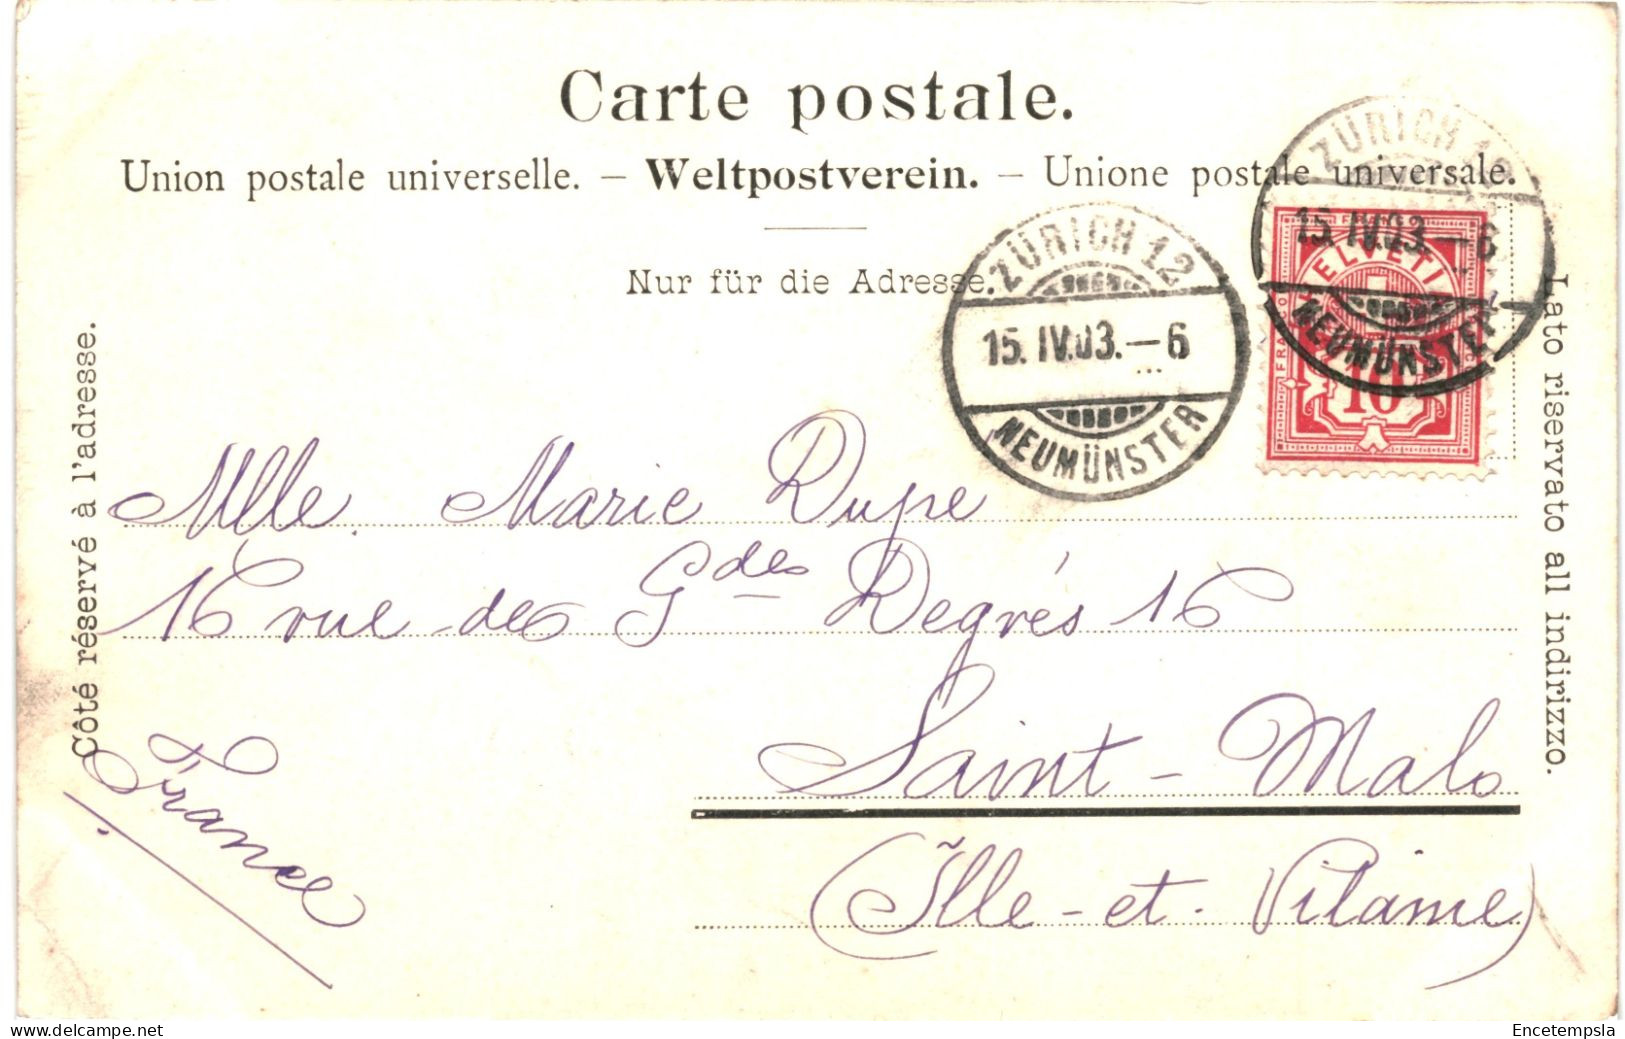 Carte postale.
Union postale universelle. – Weltpostverein. – Unione postale universale.
Nur für die Adresse.
Côté réservé à l'adresse.
Lato riservato all indirizzo.
ZÜRICH 12
15.IV.03.–6
NEUMÜNSTER
ZÜRICH 12
15.IV.03.–6
NEUMÜNSTER
FRANCO
HELVETIA
10
Mlle Marie Dupe
16 rue des Gdes Degrés 16
Saint-Malo
(Ille-et-Vilaine)
France
Encetempsla